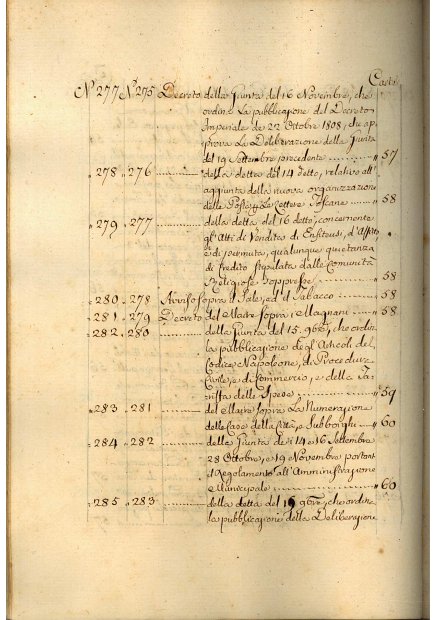 Carte
N.° 277 N.° 275 Decreto della Giunta del 16 Novembre, che
ordina la pubblicazione del Decreto
Imperiale de 22 Ottobre 1808, che ap
prova la Deliberazione della Giunta
del 19 Settembre precedente ............ " 57
" 278 " 276 ............ della detta del 14 detto, relativo all'
aggiunta della nuova organizzazione
delle Poste p le Lettere Toscane ........ " 58
" 279 " 277 ............ della detta del 16 detto, concernente
gl'Atti di Vendita di Enfiteusi, d'Affitti
e di permuta, qualunque quietanza
di Credito stipulata dalle Comunità
Religiose soppresse ............ " 58
" 280 " 278 Avviso sopra il Sale, ed il Tabacco ........ " 58
" 281 " 279 Decreto del Maire sopra i Magnani ........ " 58
" 282 " 280 ............ della Giunta del 15. 9bre, che ordin
la pubblicazione degl'Articoli del
Codice Napoleone, di Procedura
Civile, e di Commercio, e della Ta
riffa delle Spese ............ " 59
" 283 " 281 ............ del Maire sopra la Numerazione
delle Case della Città, e Subborghi ........ " 60
" 284 " 282 ............ della Giunta de' 14 e 16 Settembre
28 Ottobre, e 19 Novembre portant
il Regolamento all'Amministrazione
Municipale ............ " 60
" 285 " 283 ............ della detta del 19 9bre, che ordina
la pubblicazione della Deliberazione